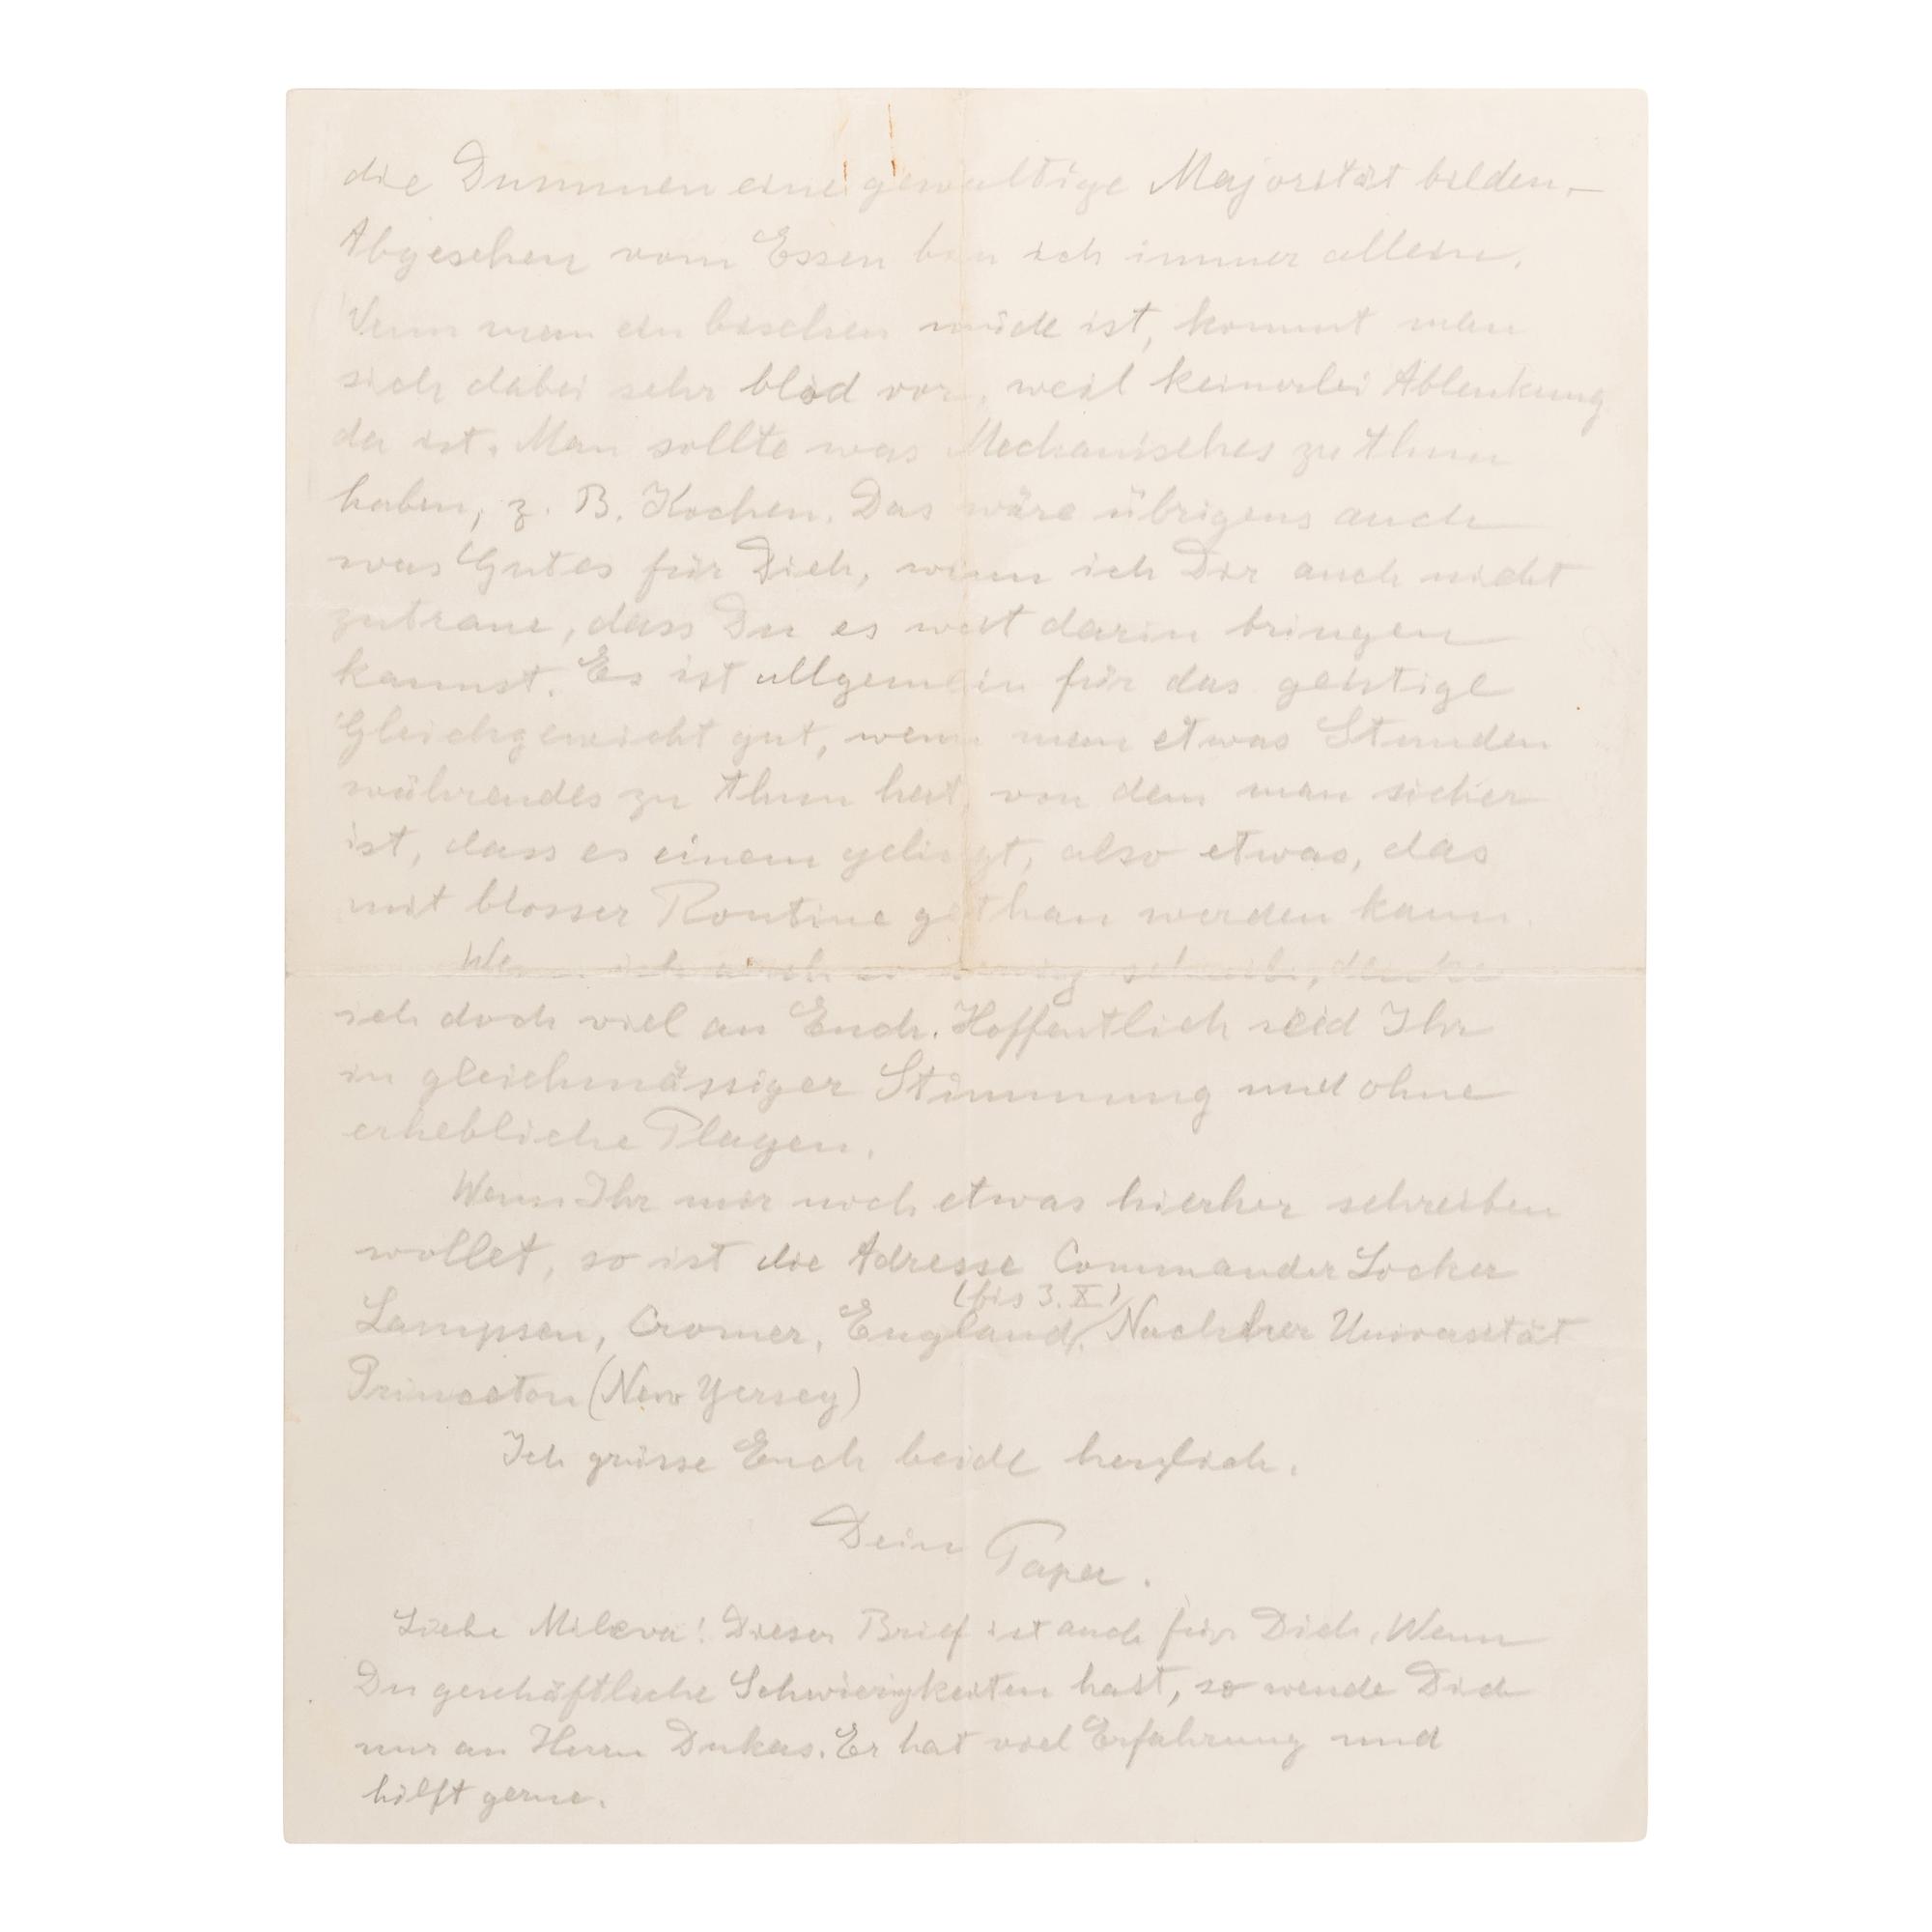 die Dummen eine gewaltige Majorität bilden.—
Abgesehen vom Essen bin ich immer allein.
Wenn man ein bischen müde ist, kommt man
sich dabei sehr blöd vor, weil keinerlei Ablenkung
da ist. Man sollte was Mechanisches zu thun
haben, z. B. Kochen. Das wäre übrigens auch
was Gutes für Dich, wenn ich Dir auch nicht
zutraue, dass Du es weit darin bringen
kannst. Es ist allgemein für das geistige
Gleichgewicht gut, wenn man etwas Stunden
währendes zu thun hat, von dem man sicher
ist, dass es einem gelingt, also etwas, das
mit blosser Routine gethan werden kann.
Wenn ich auch wenig schreibe, denke
ich doch viel an Euch. Hoffentlich seid Ihr
in gleichmässiger Stimmung und ohne
erhebliche Plagen.
Wenn Ihr mir noch etwas hierher schreiben
wollet, so ist die Adresse Commander Locker
Lampsen, Cromer, England (bis 3. X). Nachher Universität
Princeton (New Yersey)
Ich grüsse Euch beide herzlich.
Dein Papa.
Liebe Mileva! Dieser Brief ist auch für Dich. Wenn
Du geschäftliche Schwierigkeiten hast, so wende Dich
nur an Herrn Dukas. Er hat viel Erfahrung und
hilft gerne.